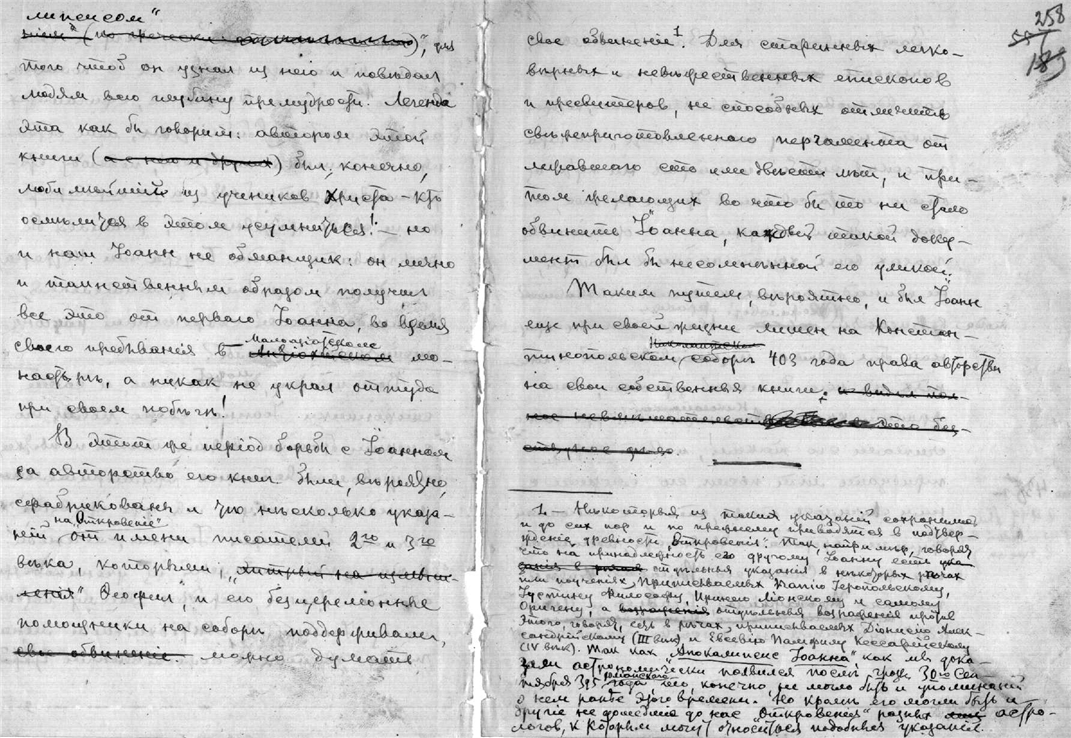 липсисом"
того чтоб он узнал из него и поведал
людям всю глубину премудрости. Легенда
эта как бы говорит: автором этой
книги (а с нею и других) был, конечно,
любимейший из учеников Христа – кто
осмелится в этом усумниться! – но
и наш Іоанн не обманщик: он лично
и таинственным образом получил
все это от перваго Іоанна, во время
своего пребыванія в
мо-
настырѣ, а никак не украл оттуда
при своем побѣгѣ!
В этот же період борьбы с Іоанном
за авторство его книг были, вѣроятно,
сфабрикованы и тѣ нѣсколько указа-
на "Откровеніе"
ній от имени писателей 2го и 3го
вѣка, которыми,
Феофил, и его безцеремонные
помощники на соборѣ поддерживали,
свое обвиненіе. можно думать
258
189
свое обвиненіе1. Для старинных легко-
вѣрных и невѣжественных епископов
и пресвитеров, не способных отличить
свѣжеприготовленнаго пергамента от
лежавшаго сто или двѣсти лѣт, и при-
том желающих во что бы то ни стало
обвинить Іоанна, каждый такой доку-
мент был бы несомнѣнной его уликой.
Таким путем, вѣроятно, и был Іоанн
еще при своей жизни лишен на Констан-
тинопольском соборѣ 403 года права авторства
на свои собственныя книги.
1 – Нѣкоторыя из таких указаній сохранились
и до сих пор и по прежнему приводятся в подтвер-
жденіе древности "Откровенія". Так, напримѣр, говорят
что на принадлежность его другому Іоанну есть ука-
занія в отдѣльныя указанія в нѣкоторых рѣчах
или поученіях, приписываемых Папію Іеропольскому,
Іустину Философу, Иринею Ліонскому и самому
Оригену, а отдѣльныя возраженія против
этого, говорят, есть в рѣчах, приписываемых Діонисію Алек-
сандрійскому (III вѣк) и Евсевію Памфилу Кессарійскому
(IV вѣк). Так как "Апокалипсис Іоанна" как мы дока-
зали астрономически появился послѣ грозы 30го Сен-
тября 395 юліанскаго года, то, конечно, не могло быть и упоминаній
о нем ранѣе этого времени. Но кромѣ его могли быть и
другіе не дошедшіе до нас "Откровенія" разных астро-
логов, к которым могут относиться подобныя указанія.